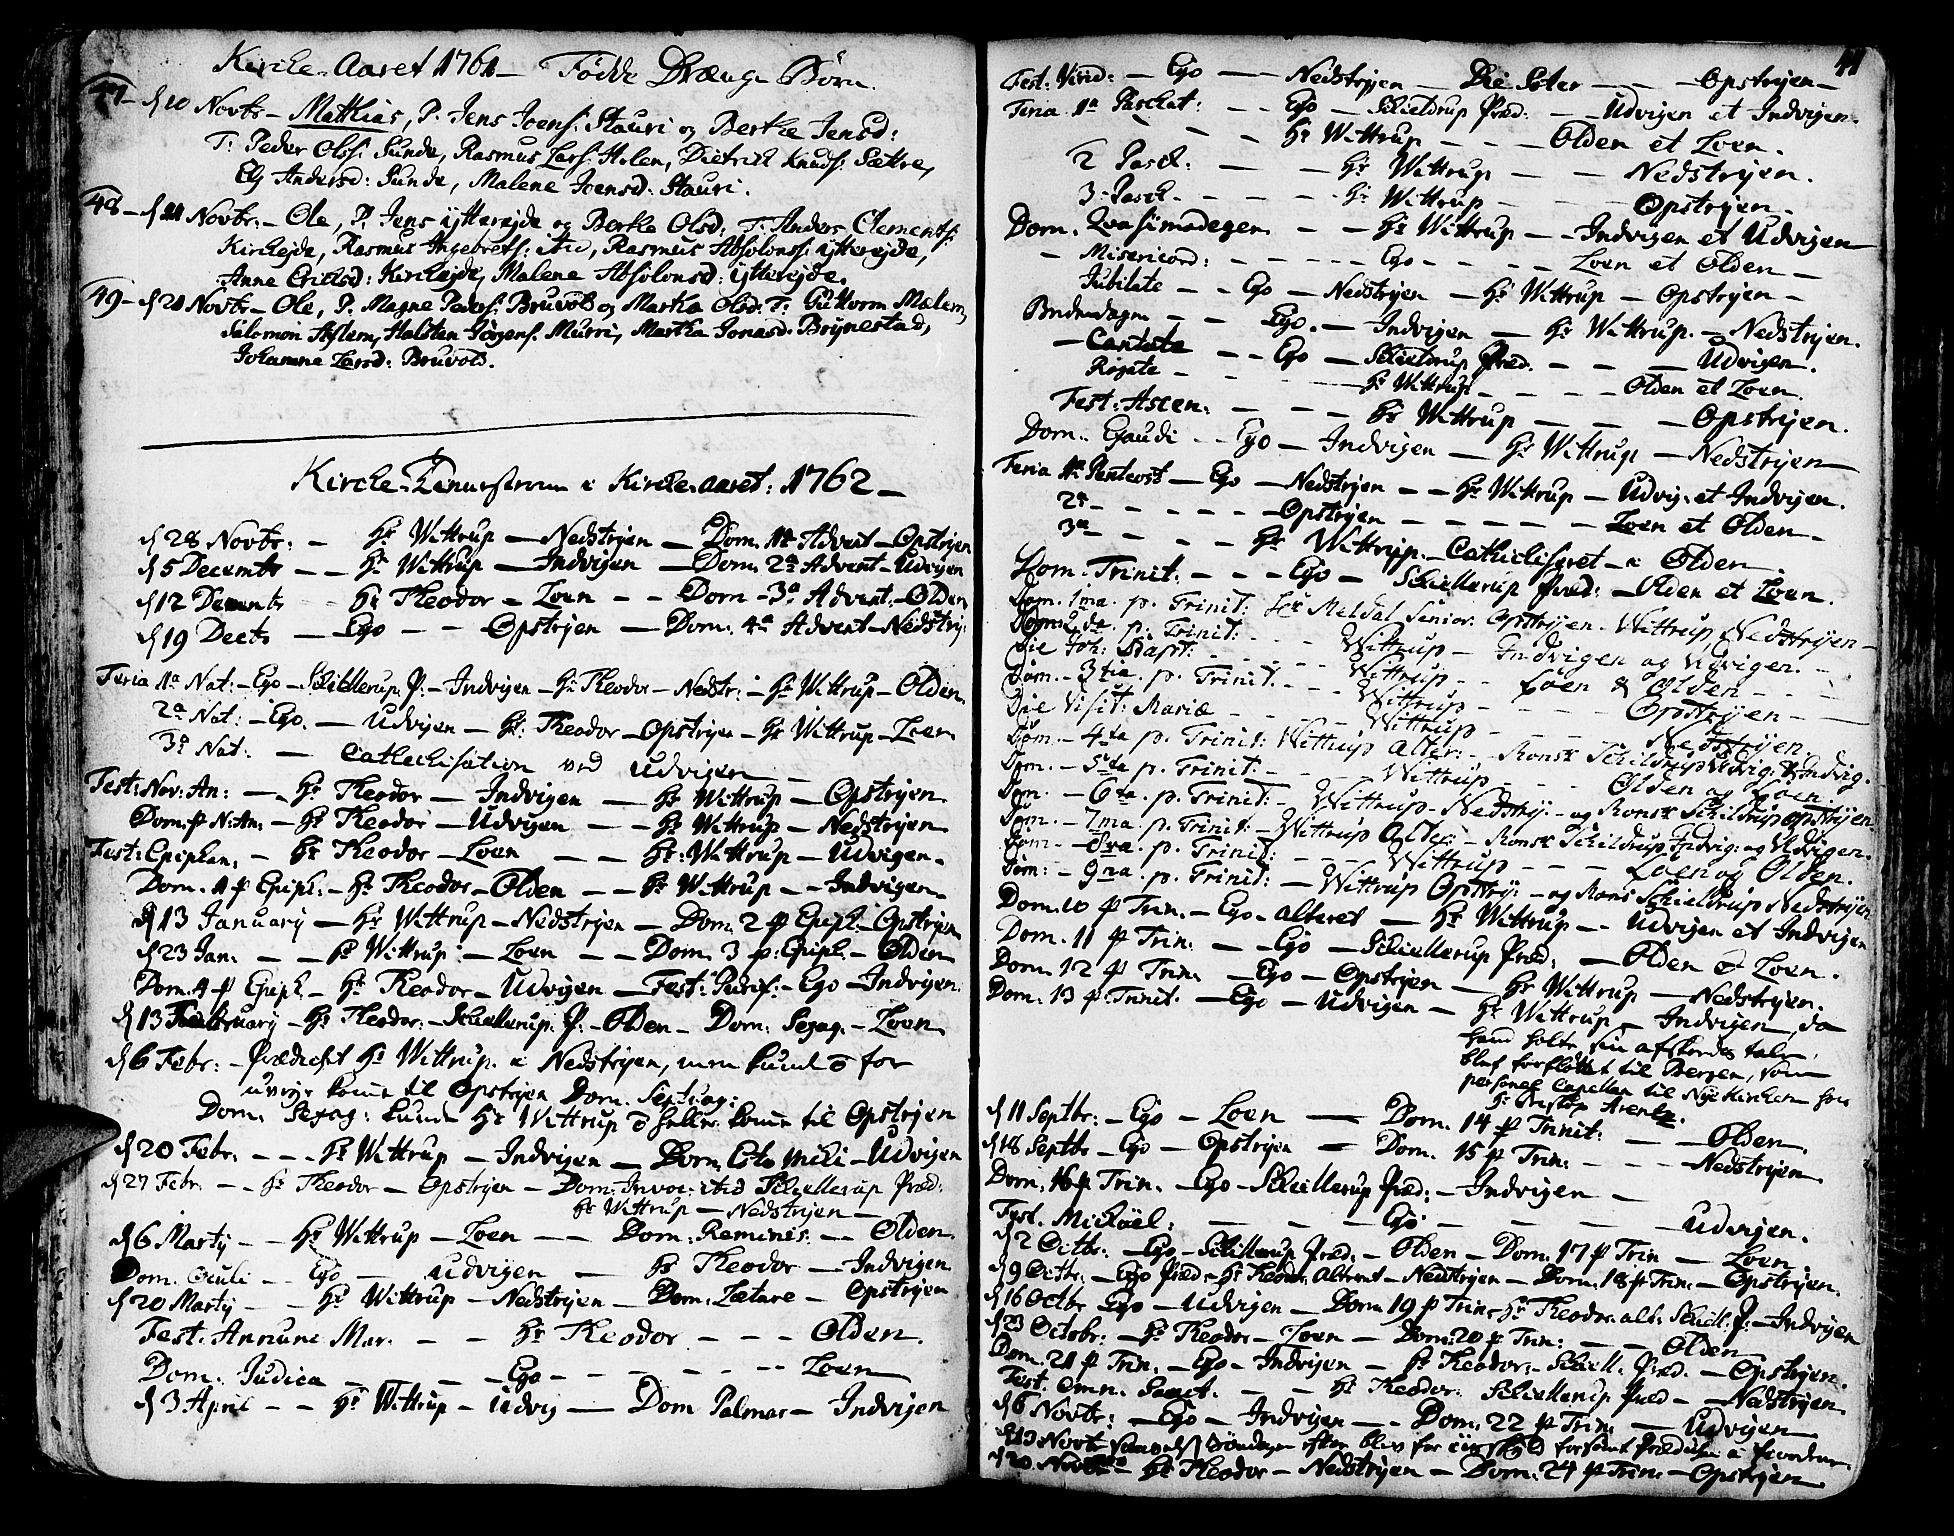 Kircke-Aaret 1761 — Fødde Drænge Børn.
47 – d 10 Novbr – Matthias, P. Jens Joens: Stauri og Berthe Jensd:
T. Peder Ols: Sunde, Rasmus Lars: Holen, Dietrich Knuds: Sættre,
Elj Andersd: Sunde, Malene Joensd: Stauri.
48 – d 21 Novbr: – Ole, P. Jens ÿtterejde og Berthe Olsd: T: Anders Clements:
Kirckejde, Rasmus Ingebrets: Aid, Rasmus Absolons: ÿtterejde,
Anne Ericksd: Kirckejde, Malene Absolonsd: ÿtterejde.
49 – d 21 Novbr – Ole, P. Magne Peders: Bruvold og Martha Olsd: T: Guttorm Mælem,
Salomon Aslem, Halsten Jørgens: Murri, Martha Jonasd: Brÿnestad,
Johanne Larsd: Bruvold.
Kircke-Tienesterne i Kircke-Aaret: 1762 —
d 28 Novbr: – Hr Wittrup — Nedstrÿen — Dom. 1a Advent – Opstrÿen
d 5 Decembr – – Hr Wittrup — Indvigen — Dom. 2a Advent – Udvigen
d 12 Decembr – Hr Theodor – Loen – – Dom – 3a Advent: – Olden
d 19 Decbr — Ego – – Opstrÿen — Dom. 4a Advent – Nedstrÿ:
Feria 1a Nat: – Ego – Schiellerup P: – Indvigen – Hr Theodor – Nedstr: – Hr Wittrup – Olden
2a Nat: – Ego. — Udvigen — Hr: Theodor – Opstrÿen – Hr Wittrup – Loen
3a Nat: — Catechisation ved Udvigen —
Fest: Nov: An: — Hr Theodor — Indvigen — Hr Wittrup — Opstrÿen.
Dom. p N: An: – Hr Theodor — Udvigen – – Hr Wittrup – Nedstrÿen
Fest: Epiphan. – Hr Theodor – Loen – – Hr: Wittrup – Udvigen –
Dom. 1 p Epiph: – Hr Theodor – Olden – – Hr Wittrup – – Indvigen
d 13 Januarij – Hr Wittrup – Nedstrÿen – Dom. 2 p Epiph – Opstrÿen
d 23 Jan: – – Hr Wittrup – Loen – – Dom. 3 p: Epiph: – Olden
Dom. 4 p Epiph – Hr Theodor – Udvigen — Fest: Purif: – Ego – Indvigen.
d 13 Februarij – Hr Theodor: – Schiellerup: P: – Olden – Dom: Sexag: – Loen
d 6 Febr: – Prædichet Hr Wittrup. i Nedstrÿen, men kunde o for
uvejr kome til Opstrÿen Dom. Septuag:
Dom. Sexag: kunde Hr Wittrup o heller kome til Opstrÿen
d 20 Febr. – – – Hr Wittrup – Indvigen — Dom. Esto mihi – Udvigen
d 27 Febr. – – Hr Theodor – Opstrÿen – Dom: Invoc: Schiellerup Præd:
Hr Wittrup — Nedstrÿen —
d 6 Martij – – Hr Wittrup – Loen – – Dom: Reminis: – – Olden
Dom. Oculi – – Ego — Udvigen — Hr Theodor – Indvigen
d 20 Martij – – Hr Wittrup – Nedstrÿen — Dom: Lætare – Opstrÿen
Fest. Annunc Mar. – – Hr Theodor – – – Olden.
Dom. Judica – – – Ego – – – – – Loen
d 3 April – – Hr Wittrup – Udvig — Dom Palmar – Indvigen
41
Fest: Virid: – Ego — Nedstrÿen — Hr Søter – – Opstrÿen –
Feria 1a Paschat: – – Ego – Schieldrup Præd: – – Udvigen et Indvigen.
– – – Hr Wittrup – – – Olden et Loen.
2 Pasch: – – Hr Wittrup – – Nedstrÿen.
3 – Pasch. – – – Hr Wittrup – – – Opstrÿen –
Dom. Qvasimodogen. – – Hr Wittrup – – Indvigen et Udvigen
– Misericord: – – – – – Ego – – – – Loen et Olden –
Jubilate – – Ego – Nedstrÿen – Hr Wittrup – Opstrÿen –
Beededagen – – Ego. – Indvigen — Hr Wittrup. – Nedstrÿen.
– Cantate – – Ego – Schieldrup Præd. – – Udvigen.
Rogate – – – Hr Wittrup – – – Olden et Loen.
Fest: Ascen: – – – Hr Wittrup – – – Opstrÿen.
Dom. Exaudi – – Ego — Indvigen – Hr Wittrup – Nedstrÿen —
Feria 1a Pentecost – Ego – Nedstrÿen – – Hr Wittrup – Udvig: et Indvigen.
2a – – – – – Opstrÿen – – – – – Loen et Olden –
3a – – – – Hr Wittrup. – Catechiseret – i Olden.
Dom. Trinit. – – – Ego – Schiellerup Præd: – Olden et Loen.
Dom. 1ma. p. Trinit: Hr Meldal Senior: Opstrÿen – Wittrup Nedstrÿen –
Dom. 2da. p. Trinit: – – – Wittrup – Indvigen og Udvigen. –
Die Joh: Bapt: – – – – Wittrup – – Loen & Olden – – –
Dom. – 3tia. p. Trinit: – – – Wittrup – – – Opstrÿen – –
Die Visit: Mariæ – – – Wittrup – – – Nedstrÿen.
Dom. – 4ta p. Trinit: Wittrup Alter: – Monsr Schildrup Udvig: & Indvig.
Dom. – 5ta p. Trinit – – – Wittrup – – – Olden og Loen
Dom. – 6ta. p. Trinit: – Wittrup – Nedstrÿ: – og Monsr Schildrup Opstrÿen
Dom. – 7ma p. Trinit – Wittrup Alter: – Monsr Schildrup Indvig: og Udvigen.
Dom. – 8va. p. Trinit: – – – Wittrup – – – Loen og Olden.
Dom: – 9na. p. Trinit: – Wittrup Opstrÿ: – og Mons Schieldrup Nedstrÿen
Dom. 10 p Trin. – Ego – Alteret — Hr Wittrup – – Udvigen et Indvigen
Dom. 11 p Trin: – – Ego – Schiellerup Præd: — Olden & Loen.
Dom. 12 p Trin: – Ego – Opstrÿen – Hr Wittrup — Nedstrÿen.
Dom. 13 p. Trinit. – Ego – Udvigen — Hr Wittrup – Indvigen, da
hand holte sin afskeeds tale,
blef forflÿttet til Bergen, som
personel Capellan til Nÿe Kircken hos
Hr Biskop Arentz.
d 11 Septbr: – Ego – Loen — Dom. 14 p Trinit: – – Olden
d 18 Septbr – Ego – Opstrÿen = Dom. 15 p Trin: – – – Nedstrÿen
Dom. 16 p Trin. – Ego – Schiellerup Præd: – Indvigen —
Fest. Michäel: – – – Ego – – – – Udvigen.
d 2 Octbr: – Ego – Schiellerup Præd. – Olden – Dom. 17 p Trin – Loen
d 9 Octbr. – Ego Præd – Hr Theodor Alteret – Nedstrÿen – Dom. 18 p Trin: – Opstrÿen.
d 16 Octbr Ego – Udvigen — Dom 19 p Trin – Hr Theodor alt: Schiell: P: – Indvigen
d 23 Octobr: – Hr Theodor – Loen – Dom: 20 p Trin: – – Olden
Dom. 21 p Trin. – Ego – Indvigen – Hr Theodor: – Schiell: Præd. – Opstrÿen.
Fest. Omn. Sanct. – – Hr Theodor. Schiellerup Præd – Nedstrÿen.
d 6 Novbr: – Ego – Indvigen – – Dom. 22 p Trin – Udvigen
d 13 Novbr Søndagen efter blev for forsømt Prædiken i
d 20 Novbr – Hr Theodor – Nedstrÿen – Dom. 24 p Trin: – Opstrÿen